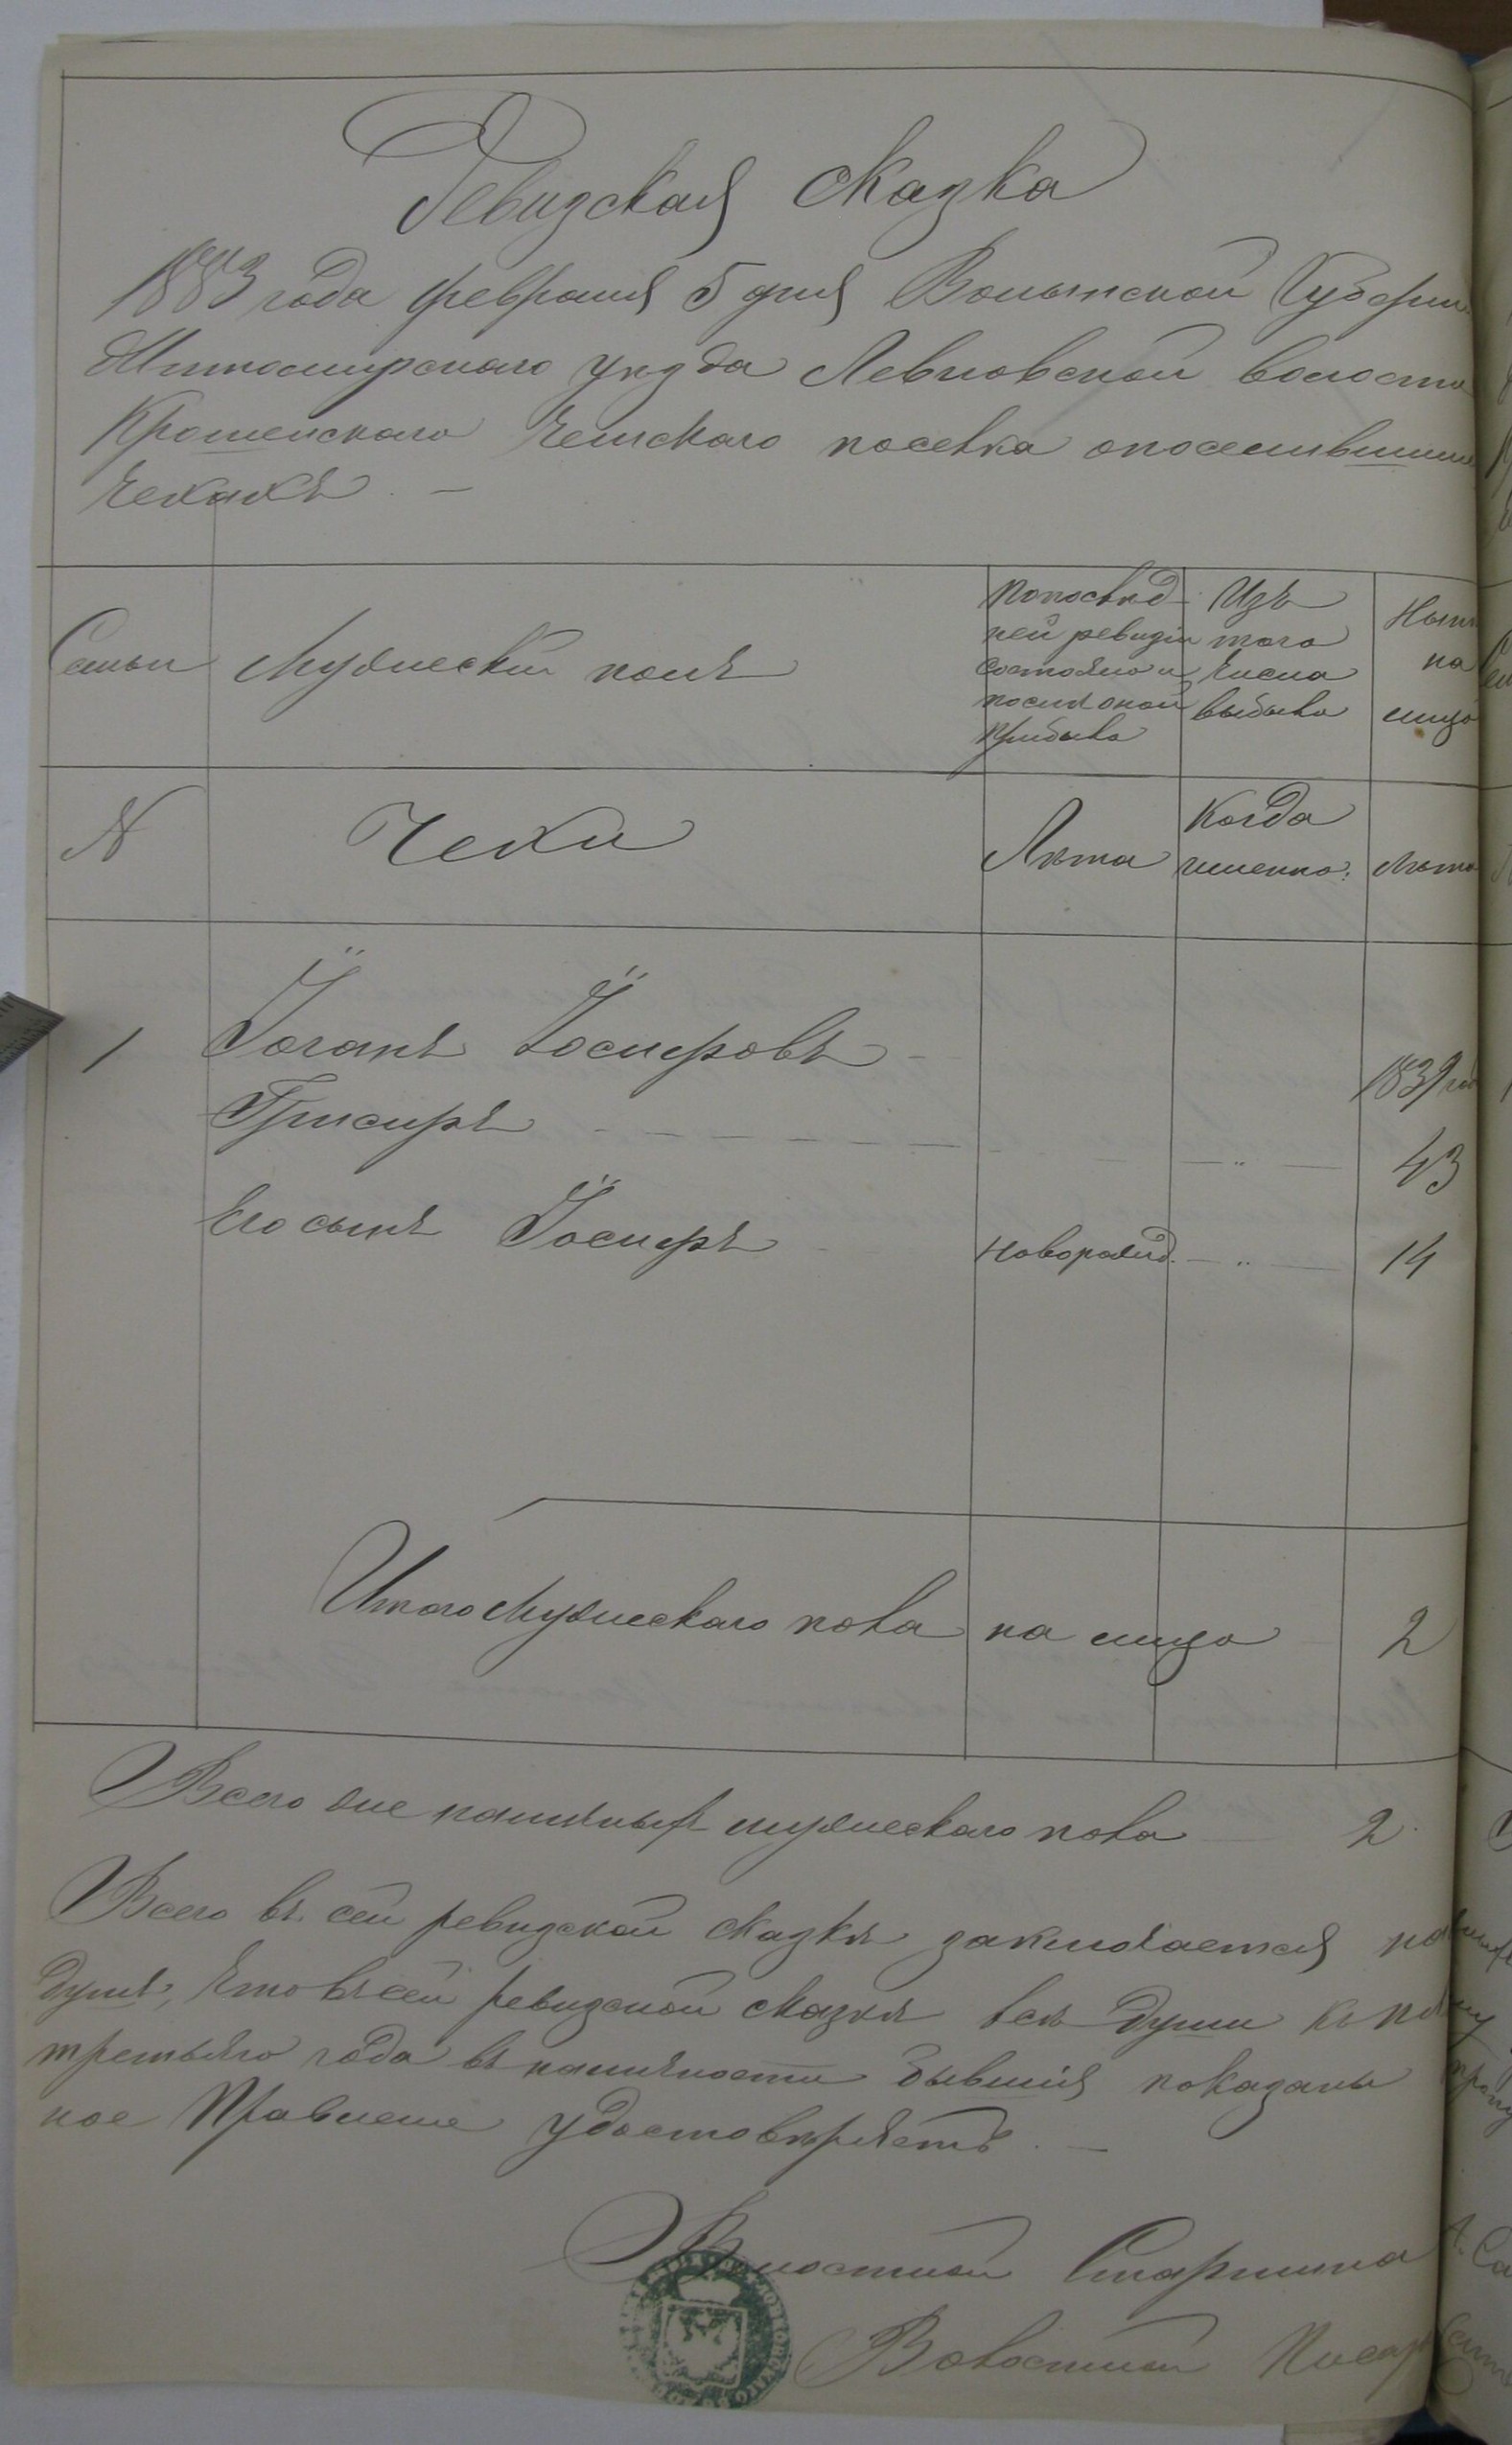 Ревизская сказка
1883 года февраля 5 дня Волынской Губерні
Житомирскаго уѣзда Левковской волости
Крошенскаго Чешскаго поселка о поселившихся
Чехахъ. —
Семьи
Мужескій полъ
По послѣд-
ней ревизіи
состояло и
послѣ оной
прибыло
Изъ
того
числа
выбыло
Нынѣ
на
лицо
№
Чехи
Лѣта
Когда
именно:
Лѣта
1 Іоганъ Іосифовъ 1839 год
43
Его сынъ Іосифъ новорожд. — " — 14
Итого мужескаго пола на лицо 2
Всего же наличныхъ мужескаго пола 2.
Всего въ сей ревизской сказкѣ заключается на
душѣ, что въ сей ревизской сказкѣ всѣ души къ
третьяго года въ наличности бывшія показаны
ное Правленіе удостовѣряетъ. —
Волостной Старшина
Волостной Писарь